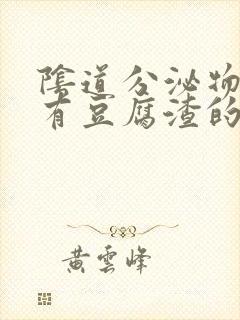 陰道分泌物
有豆腐渣的
黄雲峰